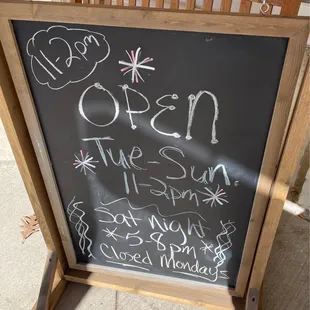 11-2pm
OPEN
Tue-Sun.
11-2pm
Sat Night
5-8pm
Closed Mondays